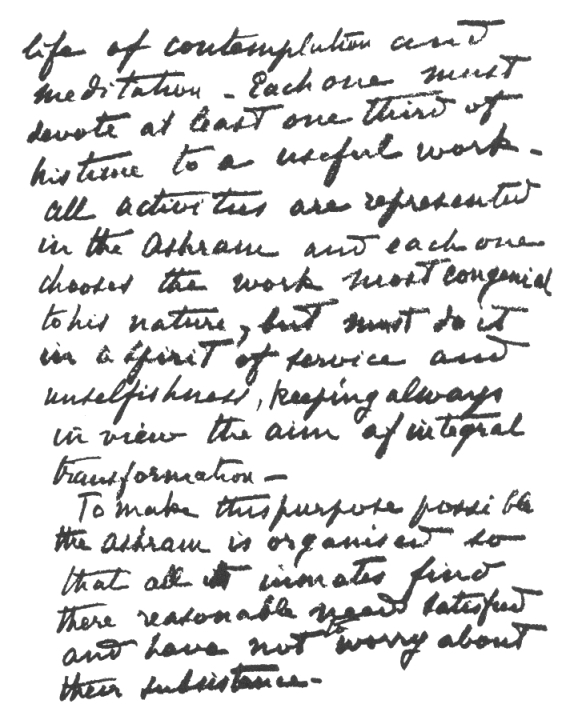 life of contemplation and
meditation - Each one must
devote at least one third of
his time to a useful work -
all activities are represented
in the Ashram and each one
chooses the work most congenial
to his nature, but must do it
in a spirit of service and
unselfishness, keeping always
in view the aim of integral
transformation -
To make this purpose possible
the Ashram is organised so
that all its inmates find
there reasonable need satisfied
and have not to worry about
their subsistence -